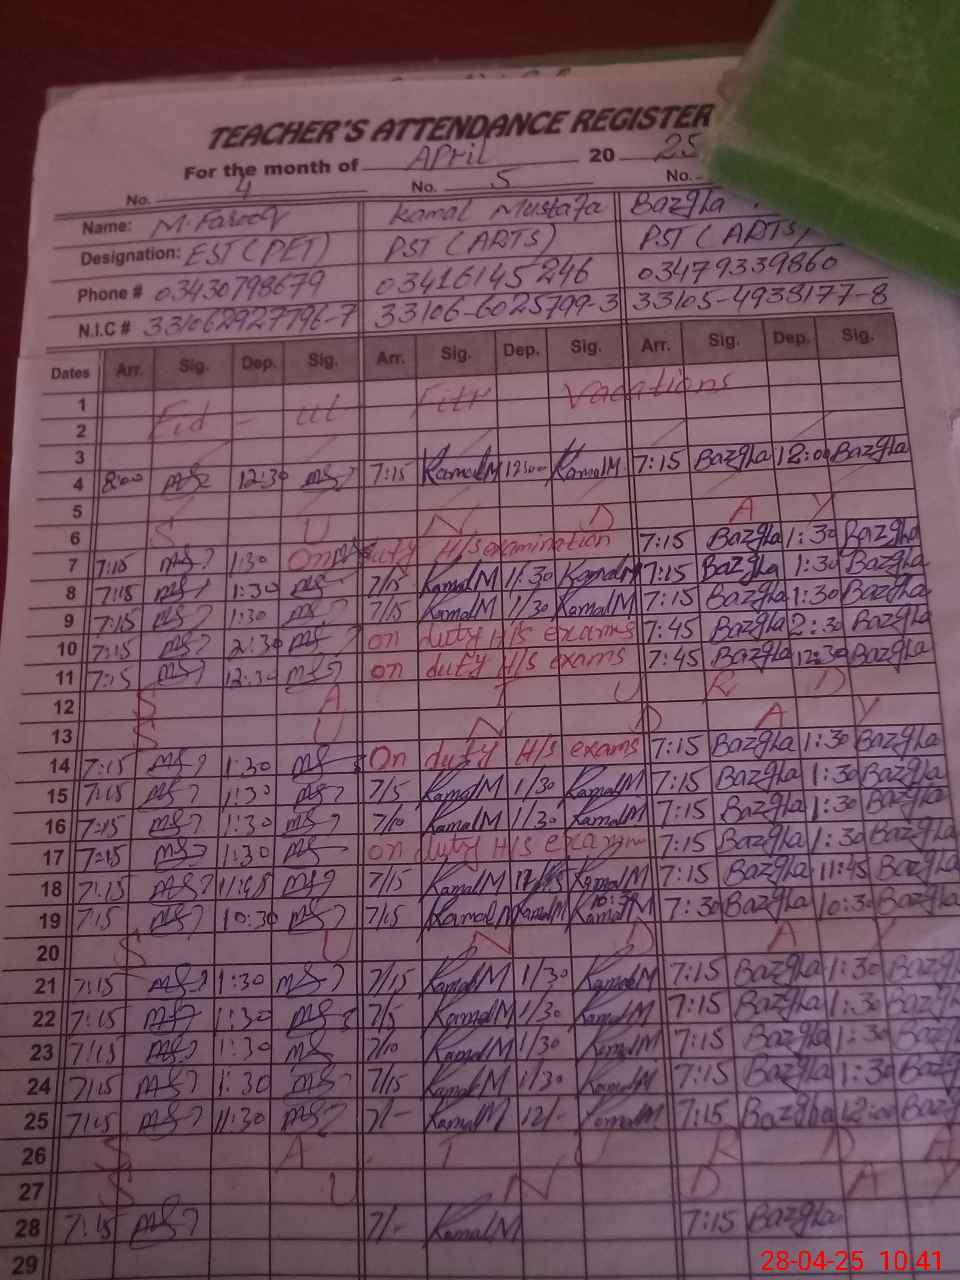 TEACHER'S ATTENDANCE REGISTER
For the month of April 20 25
No. 4 No. 5 No.
Name: M. Farooq Kamal Mustafa Bazgha
Designation: EST (PET) PST (ARTS) PST (ARTS)
Phone # 03430798679 03416145246 03479339860
N.I.C # 331062927796-7 33106-6025799-3 33105-4938177-8
Dates Arr. Sig. Dep. Sig. Arr. Sig. Dep. Sig. Arr. Sig. Dep. Sig.
1 Eid - ul Fitr Vacations
2
3
4 8:00 12:30 7:15 KamalM 12:00 KamalM 7:15 Bazgha 12:00 Bazgha
5
6 S U N D A Y
7 7:15 1:30 On duty H/s examination 7:15 Bazgha 1:30 Bazgha
8 7:15 1:30 7/15 KamalM 1/:30 KamalM 7:15 Bazgha 1:30 Bazgha
9 7:15 1:30 7/15 KamalM 1/30 KamalM 7:15 Bazgha 1:30 Bazgha
10 7:15 2:30 on duty H/s exams 7:45 Bazgha 2:30 Bazgha
11 7:15 12:30 on duty H/s exams 7:45 Bazgha 12:30 Bazgha
12 S A T U R D
13 S U N D A Y
14 7:15 1:30 On duty H/s exams 7:15 Bazgha 1:30 Bazgha
15 7:15 1:30 7/5 KamalM 1/30 KamalM 7:15 Bazgha 1:30 Bazgha
16 7:15 1:30 7/10 KamalM 1/30 KamalM 7:15 Bazgha 1:30 Bazgha
17 7:15 1:30 on duty H/s exam 7:15 Bazgha 1:30 Bazgha
18 7:15 11:45 7/15 KamalM KamalM 7:15 Bazgha 11:45 Bazgha
19 7:15 10:30 7/15 KamalM KamalM 10:30 KamalM 7:30 Bazgha 10:30 Bazgha
20 S U N D A Y
21 7:15 1:30 7/15 KamalM 1/30 KamalM 7:15 Bazgha 1:30 Bazgh
22 7:15 1:30 7/5 KamalM 1/30 KamalM 7:15 Bazgha 1:30 Bazgh
23 7:15 1:30 7/10 KamalM 1/30 KamalM 7:15 Bazgha 1:30 Bazgh
24 7:15 1:30 7/15 KamalM 1/30 KamalM 7:15 Bazgha 1:30 Bazg
25 7:15 11:30 7/- KamalM 12/- KamalM 7:15 Bazgha 12:00 Bazg
26 S A T U R D A
27 S U N D A Y
28 7:15 7/- KamalM 7:15 Bazgha
29
28-04-25 10:41